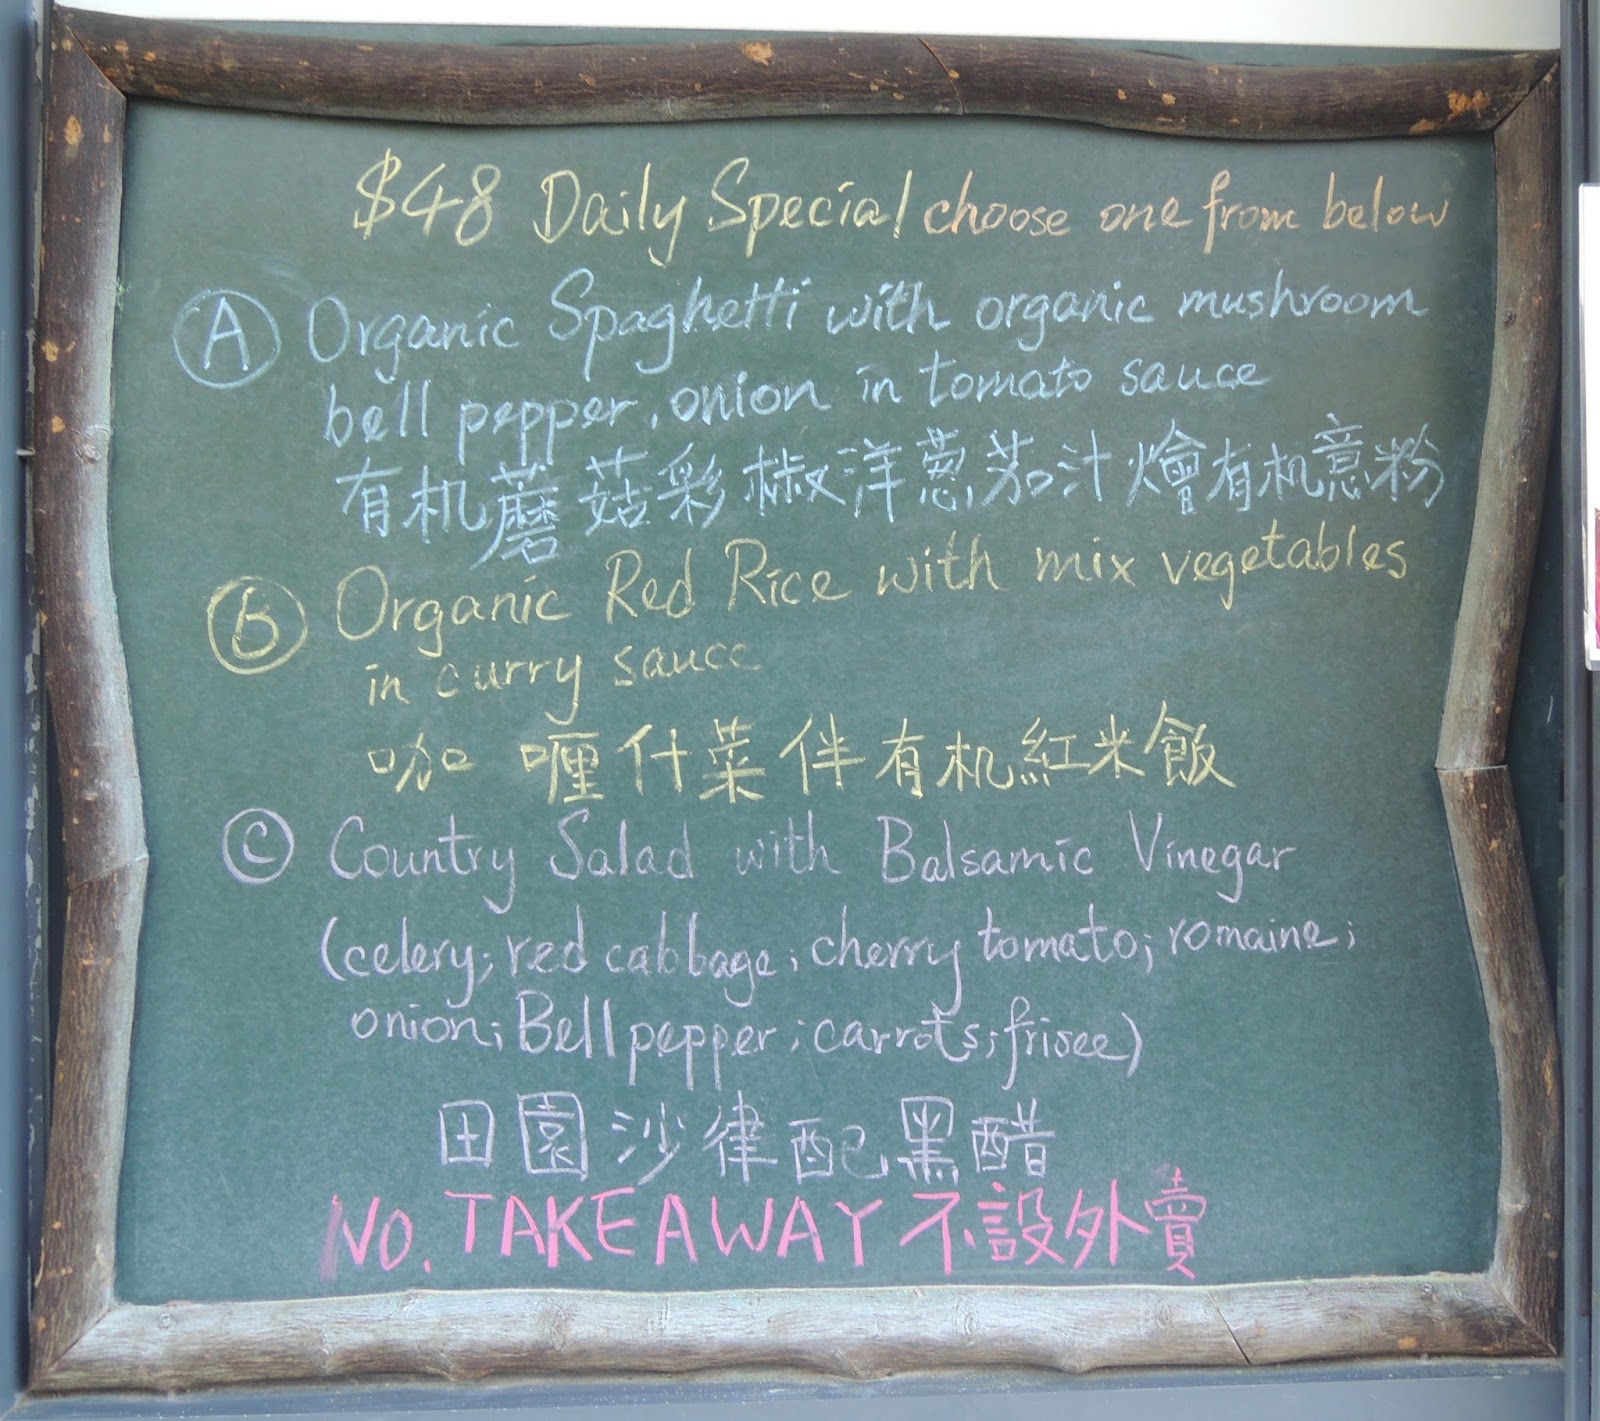 $48 Daily Special choose one from below
A Organic Spaghetti with organic mushroom
bell pepper, onion in tomato sauce
有机蘑菇彩椒洋葱茄汁燴有机意粉
B Organic Red Rice with mix vegetables
in curry sauce
咖喱什菜伴有机紅米飯
C Country Salad with Balsamic Vinegar
(celery; red cabbage; cherry tomato; romaine;
onion; Bell pepper; carrots; frisee)
田園沙律配黑醋
NO. TAKEAWAY 不設外賣